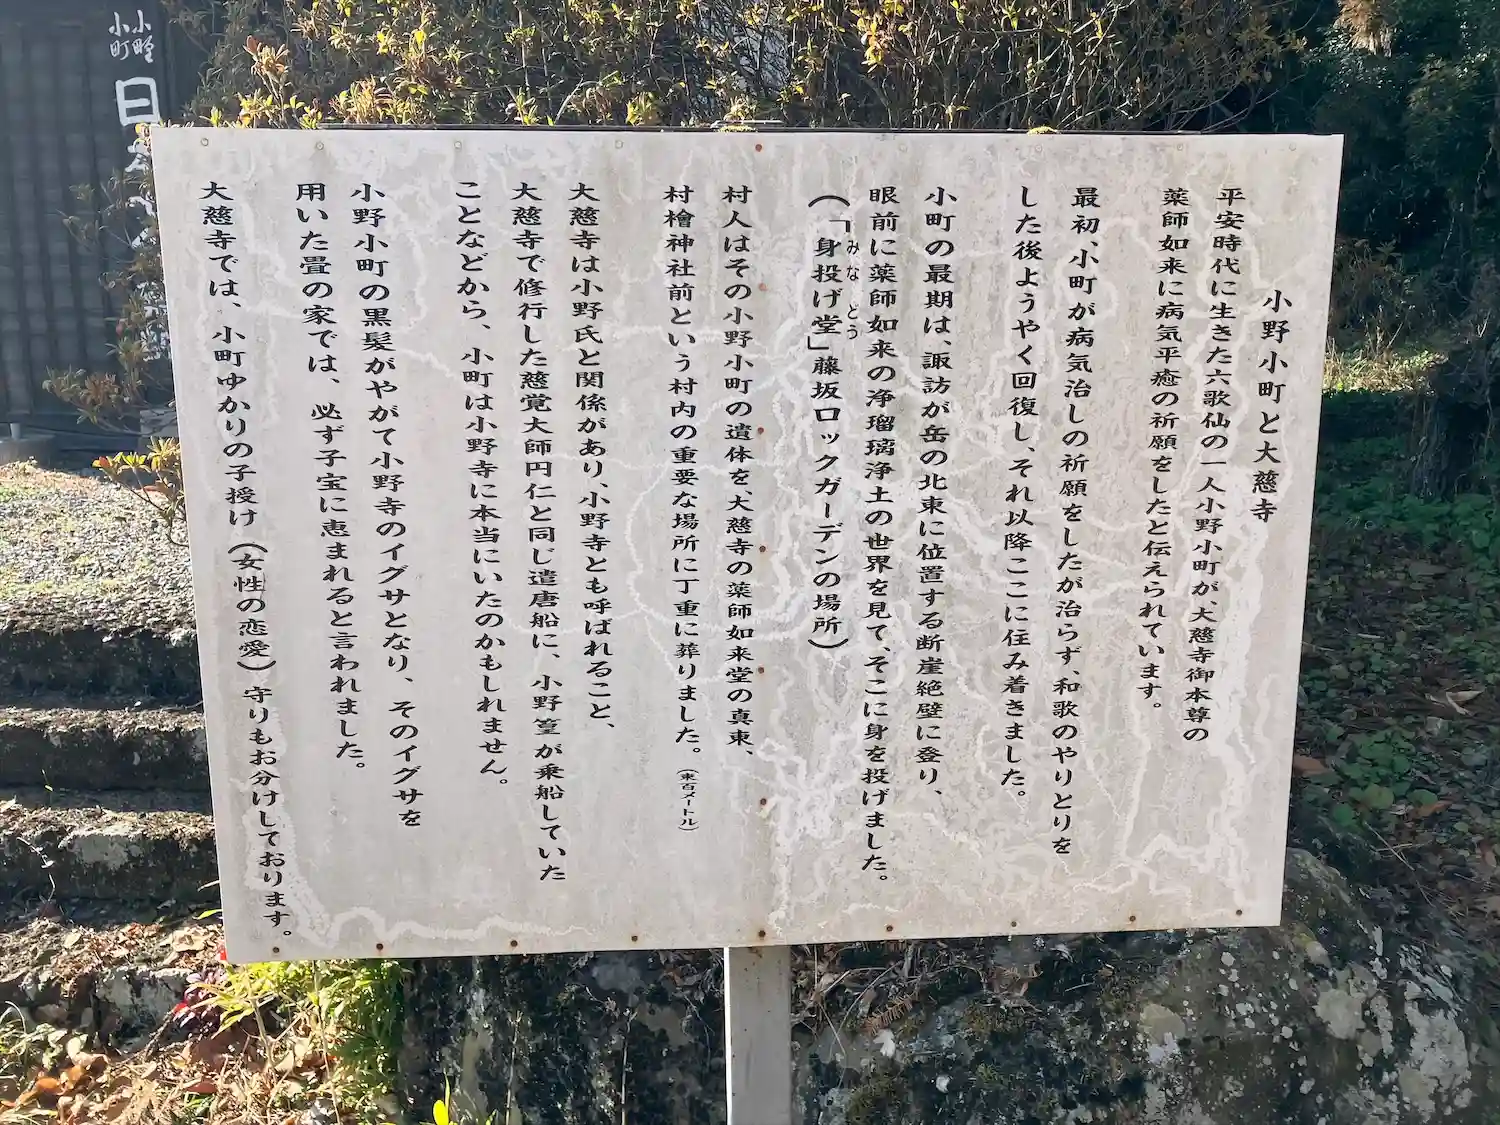 小野小町と大慈寺
平安時代に生きた六歌仙の一人小野小町が、大慈寺御本尊の
薬師如来に病気平癒の祈願をしたと伝えられています。
最初、小町が病気治しの祈願をしたが治らず、和歌のやりとりを
した後ようやく回復し、それ以降ここに住み着きました。
小町の最期は、諏訪が岳の北東に位置する断崖絶壁に登り、
眼前に薬師如来の浄瑠璃浄土の世界を見て、そこに身を投げました。
(「身投げ堂」藤坂ロックガーデンの場所)
みなどう
村人はその小野小町の遺体を、大慈寺の薬師如来堂の真東、
村檜神社前という村内の重要な場所に丁重に葬りました。(東百メートル)
大慈寺は小野氏と関係があり、小野寺とも呼ばれること、
大慈寺で修行した慈覚大師円仁と同じ遣唐船に、小野篁が乗船していた
ことなどから、小町は小野寺に本当にいたのかもしれません。
小野小町の黒髪がやがて小野寺のイグサとなり、そのイグサを
用いた畳の家では、必ず子宝に恵まれると言われました。
大慈寺では、小町ゆかりの子授け(女性の恋愛)守りもお分けしております。
小野
小町
日